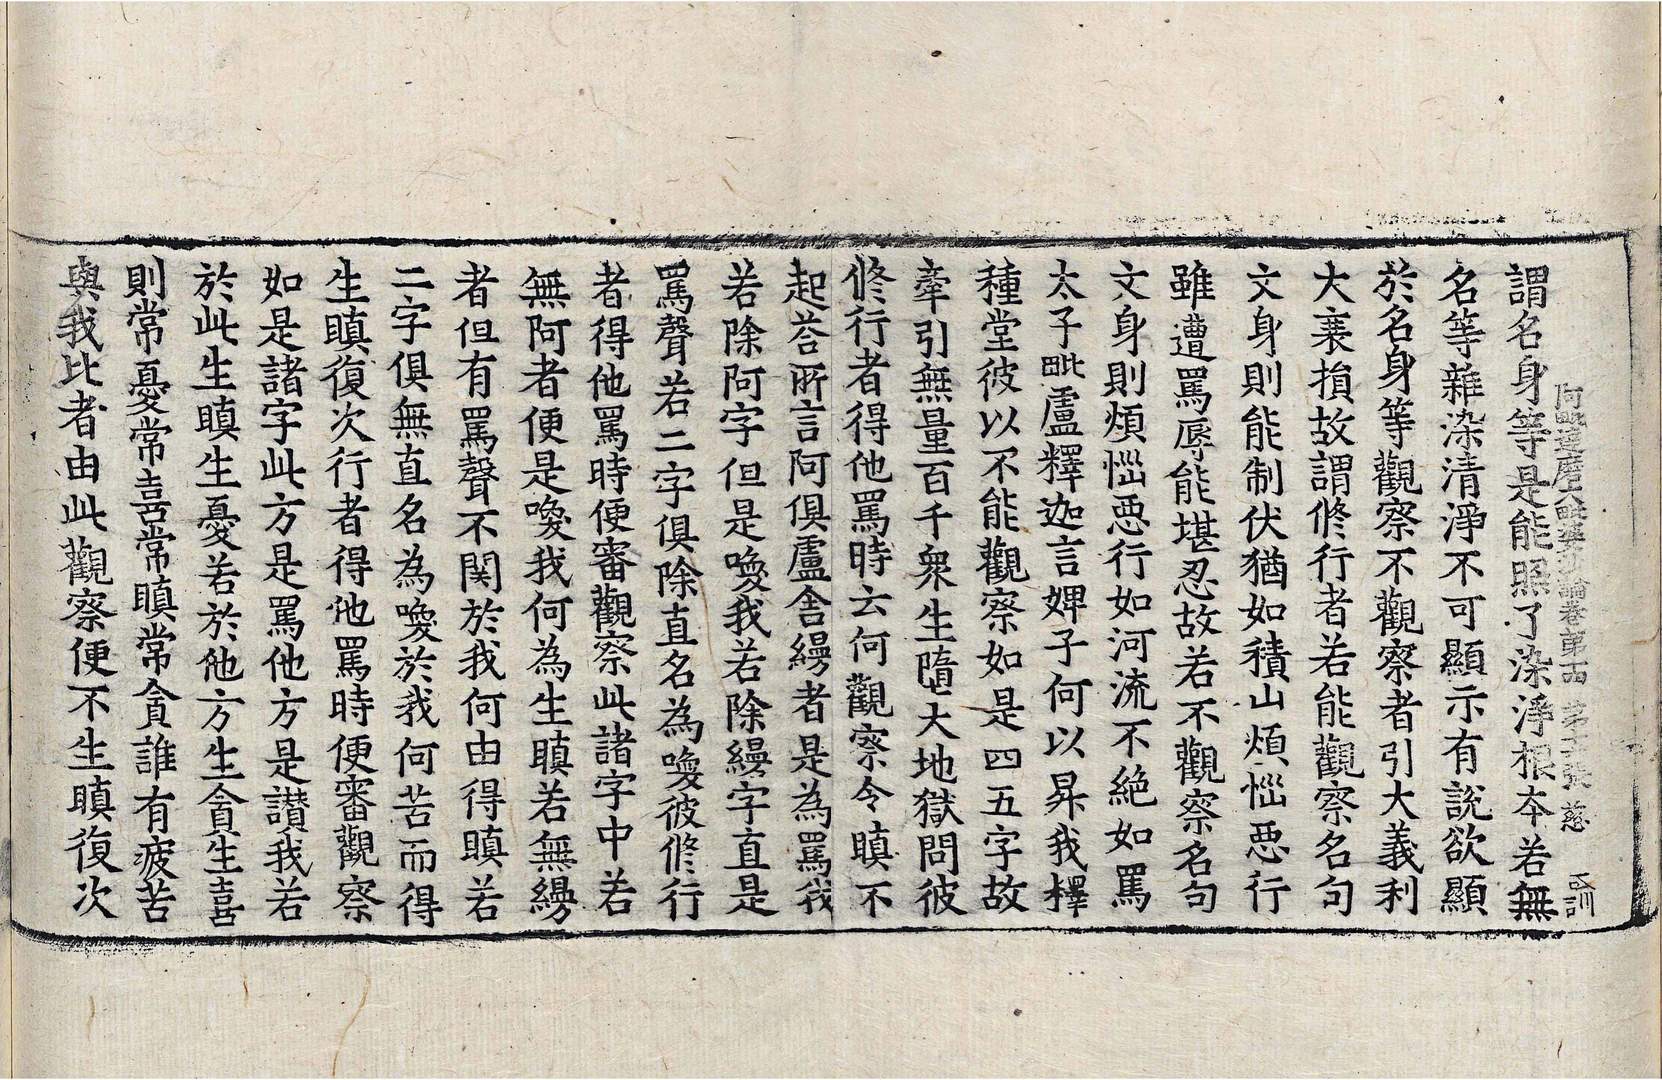 阿毗達磨大毗婆沙論卷第十四 第十六張 慈
訓
謂名身等是能照了染淨根本若無
名等雜染清淨不可顯示有說欲顯
於名身等觀察不觀察者引大義利
大衰損故謂修行者若能觀察名句
文身則能制伏猶如積山煩惱惡行
雖遭罵辱能堪忍故若不觀察名句
文身則煩惱惡行如河流不絶如罵
太子毗盧釋迦言婢子何以昇我釋
種堂彼以不能觀察如是四五字故
牽引無量百千衆生墮大地獄問彼
修行者得他罵時云何觀察令瞋不
起荅所言阿俱盧舍縵者是為罵我
若除阿字但是喚我若除縵字直是
罵聲若二字俱除直名為喚彼修行
者得他罵時便審觀察此諸字中若
無阿者便是喚我何為生瞋若無縵
者但有罵聲不関於我何由得瞋若
二字俱無直名為喚於我何苦而得
生瞋復次行者得他罵時便審觀察
如是諸字此方是罵他方是讃我若
於此生瞋生憂若於他方生貪生喜
則常憂常喜常瞋常貪誰有疲苦
與我比者由此觀察便不生瞋復次